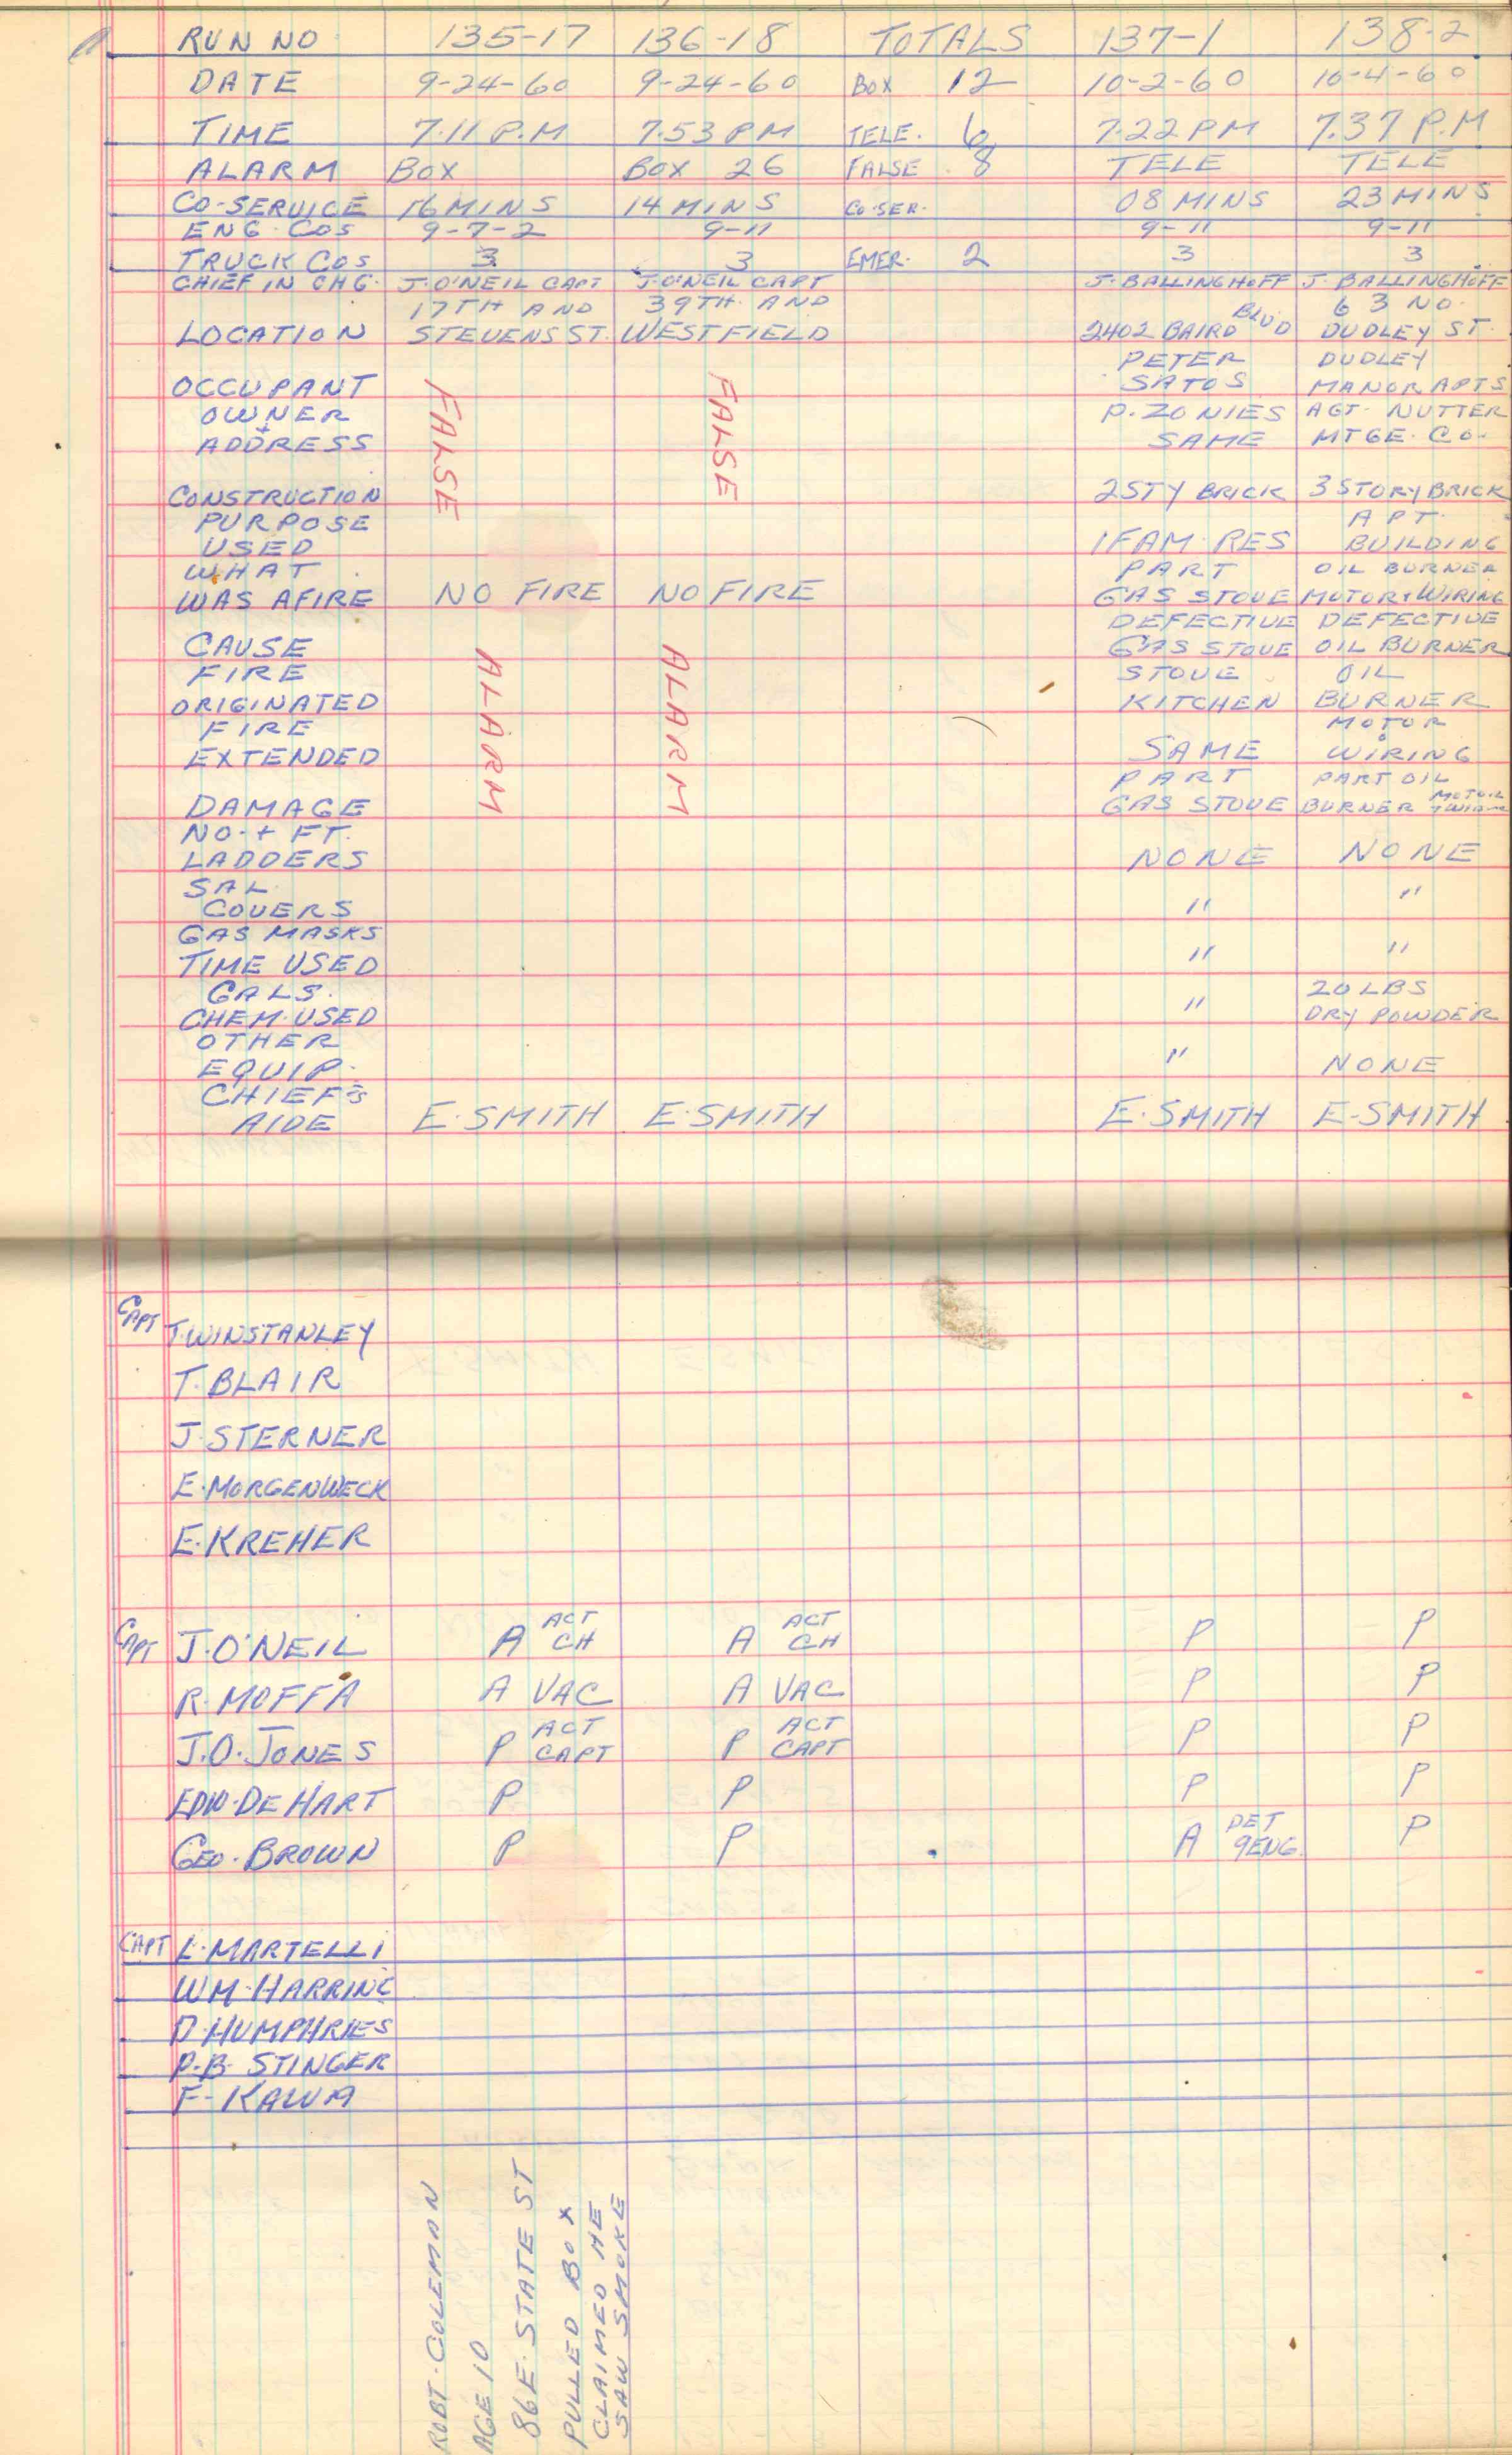 RUN NO. 135-17 136-18 TOTALS 137-1 138-2
DATE 9-24-60 9-24-60 BOX 12 10-2-60 10-4-60
TIME 7.11 P.M 7.53 PM TELE. 6 7.22 PM 7.37 P.M
ALARM BOX BOX 26 FALSE 8 TELE TELE
CO-SERVICE 16 MINS 14 MINS CO-SER. 08 MINS 23 MINS
ENG. COS 9-7-2 9-11 9-11 9-11
TRUCK COS 3 3 EMER. 2 3 3
CHIEF IN CHG. J. O'NEIL CAPT J. O'NEIL CAPT J. BALLINGHOFF J. BALLINGHOFF
17TH AND 39TH AND BLVD 63 NO.
LOCATION STEVENS ST. WESTFIELD 2402 BAIRD DUDLEY ST.
PETER DUDLEY
OCCUPANT SATOS MANOR APTS
OWNER P. ZONIES AGT. NUTTER
+
ADDRESS SAME MTGE. CO.
FALSE FALSE
CONSTRUCTION 2 STY BRICK 3 STORY BRICK
PURPOSE APT.
USED 1 FAM. RES BUILDING
WHAT PART OIL BURNER
WAS AFIRE NO FIRE NO FIRE GAS STOVE MOTOR + WIRING
DEFECTIVE DEFECTIVE
CAUSE GAS STOVE OIL BURNER
FIRE STOVE OIL
ORIGINATED KITCHEN BURNER
FIRE MOTOR
EXTENDED SAME WIRING
ALARM ALARM
PART PART OIL
DAMAGE GAS STOVE BURNER MOTOR
NO. + FT.
LADDERS NONE NONE
SAL.
COVERS " "
GAS MASKS
TIME USED " "
GALS. 20 LBS
CHEM. USED " DRY POWDER
OTHER
EQUIP. " NONE
CHIEF'S
AIDE E. SMITH E. SMITH E. SMITH E. SMITH
CAPT T. WINSTANLEY
T. BLAIR
J. STERNER
E. MORGENWECK
E. KREHER
CAPT J. O'NEIL A ACT CH A ACT CH P P
R. MOFFA A VAC A VAC P P
J. O. JONES P ACT CAPT P ACT CAPT P P
EDW. DE HART P P P P
GEO. BROWN P P A DET 9 ENG. P
CAPT L. MARTELLI
WM. HARRING
D. HUMPHRIES
P. B. STINGER
F. KAWA
ROBT. COLEMAN
AGE 10
86 E. STATE ST
PULLED BOX
CLAIMED HE
SAW SMOKE